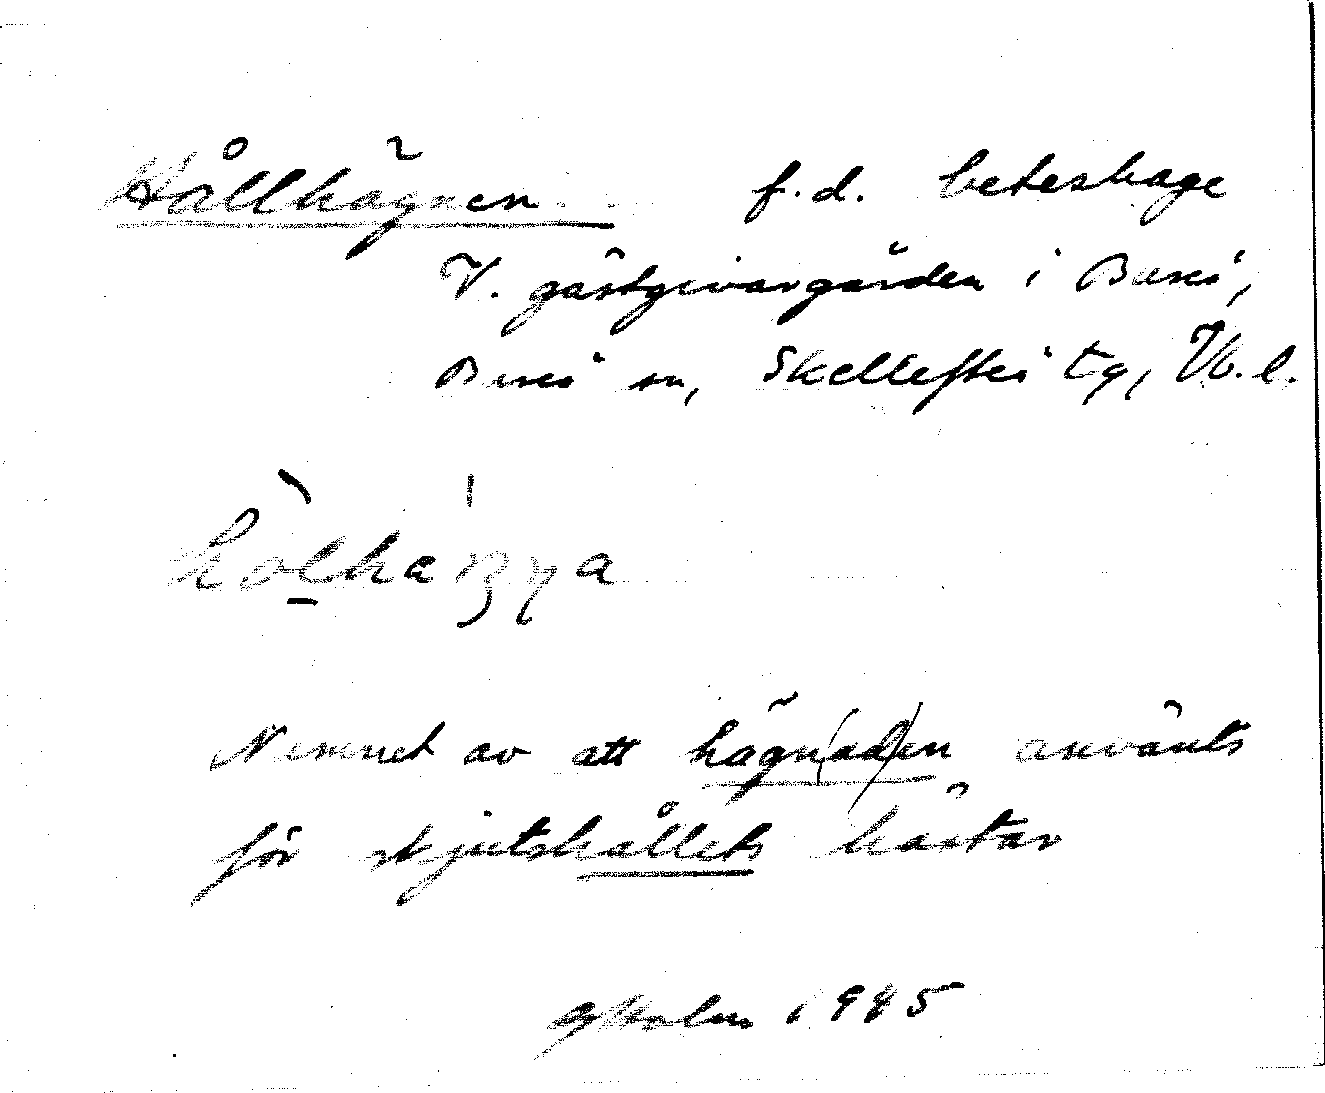 Hållhägnen f.d. beteshage
V. gästgivargården i Bureå,
Bureå sn, Skellefteå tg, Vb. l.
Namnet av att hägn(ad)en använts
för skjutshållets hästar
1945